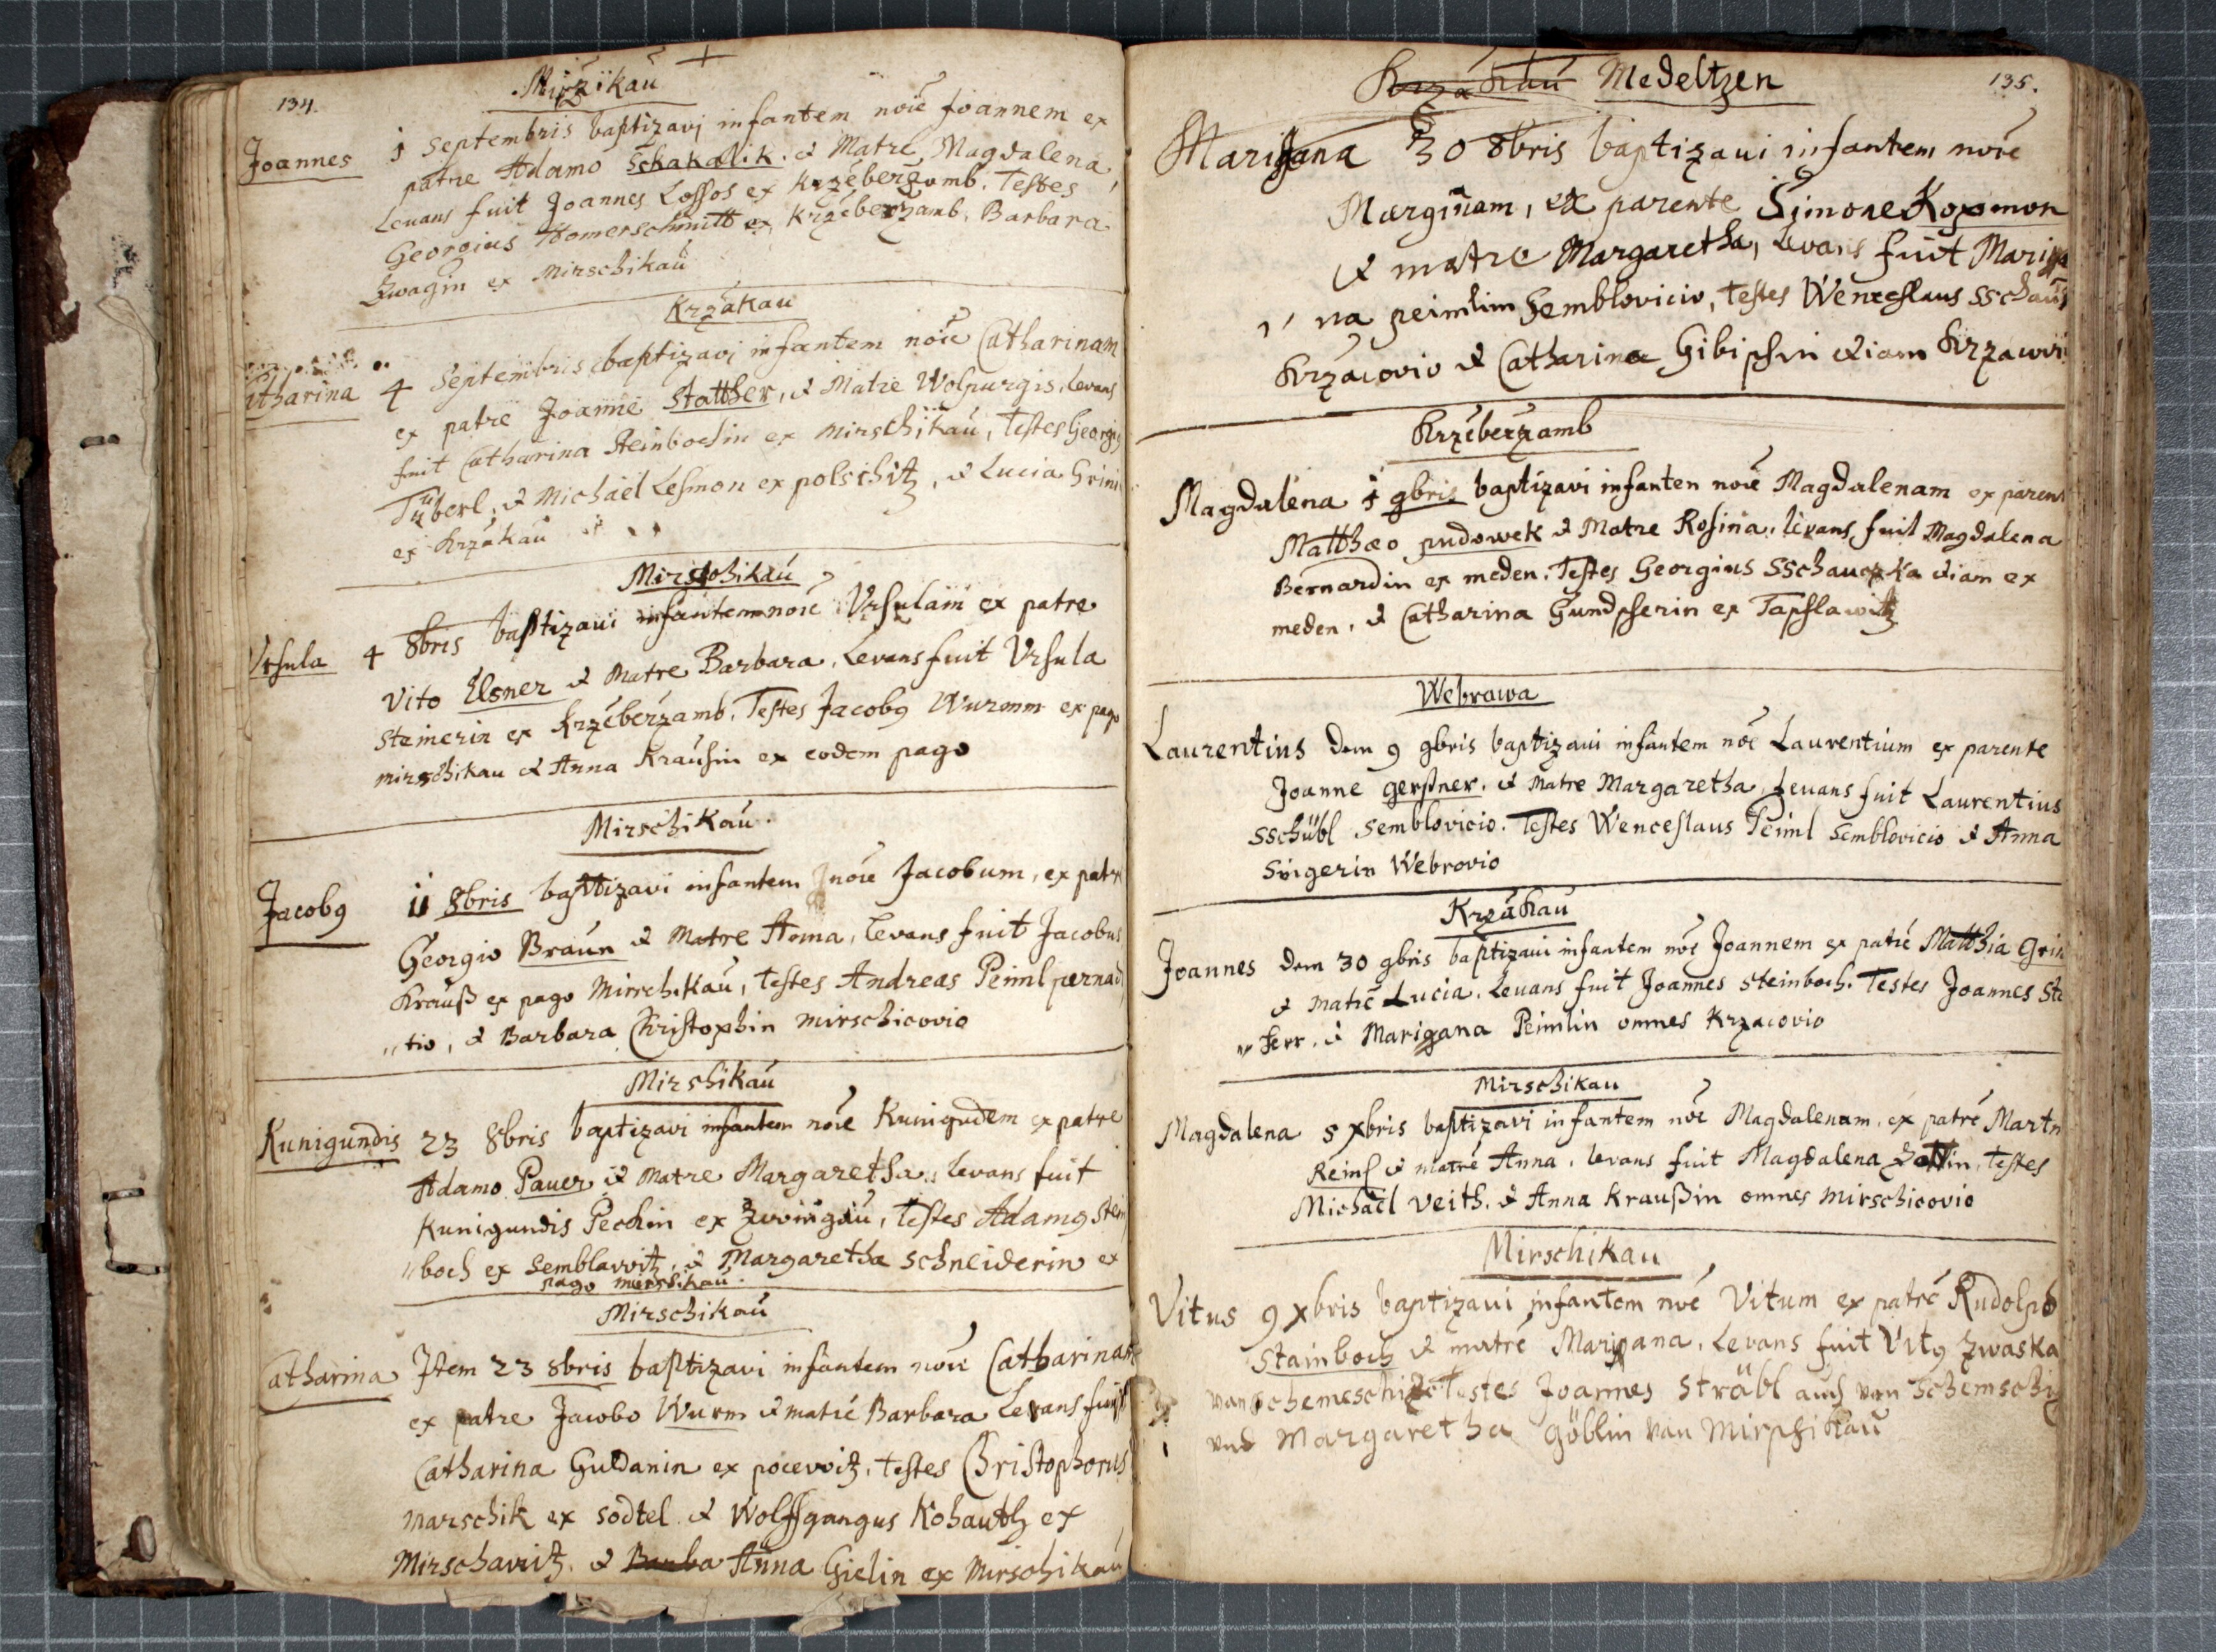 134.
Mirzikau
Joannes 1 Septembris baptizavi infantem noie Joannem ex
patre Adamo Sckakalik. & Matre Magdalena,
Levans fuit Joannes Lossos ex Krzeberzamb. Testes
Georgius Homerschmitt ex Krzeberzamb, Barbara
Zwagin ex Mirschikau
Krzakau
Catharina 4 Septembris baptizavi infantem noie Catharinam
ex patre Joanne Statther, & Matre Wolpurgis, levans
fuit Catharina Steinbochin ex Mirschikau, Testes Georgi9
Tüberl, & Michael Lesmon ex polschitz, & Lucia Grini
ex Krzakau
Mirschikau
Vrsula 4 8bris baptizaui infantem noie Vrsulam ex patre
Vito Elsner & Matre Barbara, Levans fuit Vrsula
Steinerin ex Krzeberzamb, Testes Jacob9 Wurmm ex pago
mirschikau & Anna Krausin ex eodem pago
Mirschikau.
Jacob9 11 8bris baptizavi infantem noie Jacobum, ex patre
Georgio Braun & Matre Anna, levans fuit Jacobus
Krauß ex pago Mirrchikau, testes Andreas Peiml pernad
"tio, & Barbara Christophin mirschicovio
Mirshikau
Kunigundis 23 8bris baptizavi infantem noie Kunigudem ex patre
Adamo Pauer & Matre Margaretha, levans fuit
Kunigundis Pechin ex Zwingau, Testes Adam9 Stein
"boch ex Semblawitz, & Margaretha Schneiderin ex
pago mirshikau.
Mirschikau
Catharina Jtem 23 8bris baptizavi infantem noie Catharinam
ex patre Jacobo Wurm & matre Barbara Levans fuit
Catharina Guldanin ex pocewitz, testes Christophorus
Marschik ex sodtel & Wolffgangus Kohautz ex
Mirschawitz. & Barba Anna Gielin ex Mirschikau
Krzakau Medeltzen 135.
Marigana 30 8bris baptizaui infantem noie
Margiñam, ex parente Simone Kopmon
& matre Margaretha, levans fuit Mari
"na peimlin Semblovicio, testes Wenceslaus Sschaus
Krzacovio & Catharina Gibischin etiam Krzawi
Krzeberzamb
Magdalena 1 9bris baptizavi infanten noie Magdalenam ex parent
Matthæo pudowek & Matre Rosina, levans fuit Magdalena
Bernardin ex meden. Testes Georgius Sschauczka etiam ex
meden, & Catharina Gundscherin ex Tapslawitz
Webrawa
Laurentius dem 9 9bris baptizaui infantem noe Laurentium ex parente
Joanne gerstner. & Matre Margaretha, Levans fuit Laurentius
Sschübl Semblovicio. Testes Wenceslaus Peiml Semblovicio & Anna
Svigerin Webrovio
Krzakau
Joannes dem 30 9bris baptizaui infantem noe Joannem ex patre Matthia Grin
& matre Lucia. Levans fuit Joannes Steinboch. Testes Joannes Sta
"herr. & Marigana Peimlin omnes Krzacovio
Mirschikau
Magdalena 5 xbris baptizavi infantem noe Magdalenam, ex patre Martn
Reins & matre Anna, levans fuit Magdalena Zottin, testes
Michael Veith. & Anna Kraußin omnes Mirschicovio
Mirschikau
Vitus 9 xbris baptizaui infantem noe Vitum ex patre Rudolpho
Stainboch & matre Marigana, Levans fuit Vit9 Zwaska
van schemeschitz Testes Joannes Sträbl auß van Schemschi
vnd Margaretha Göblin van Mirschikau